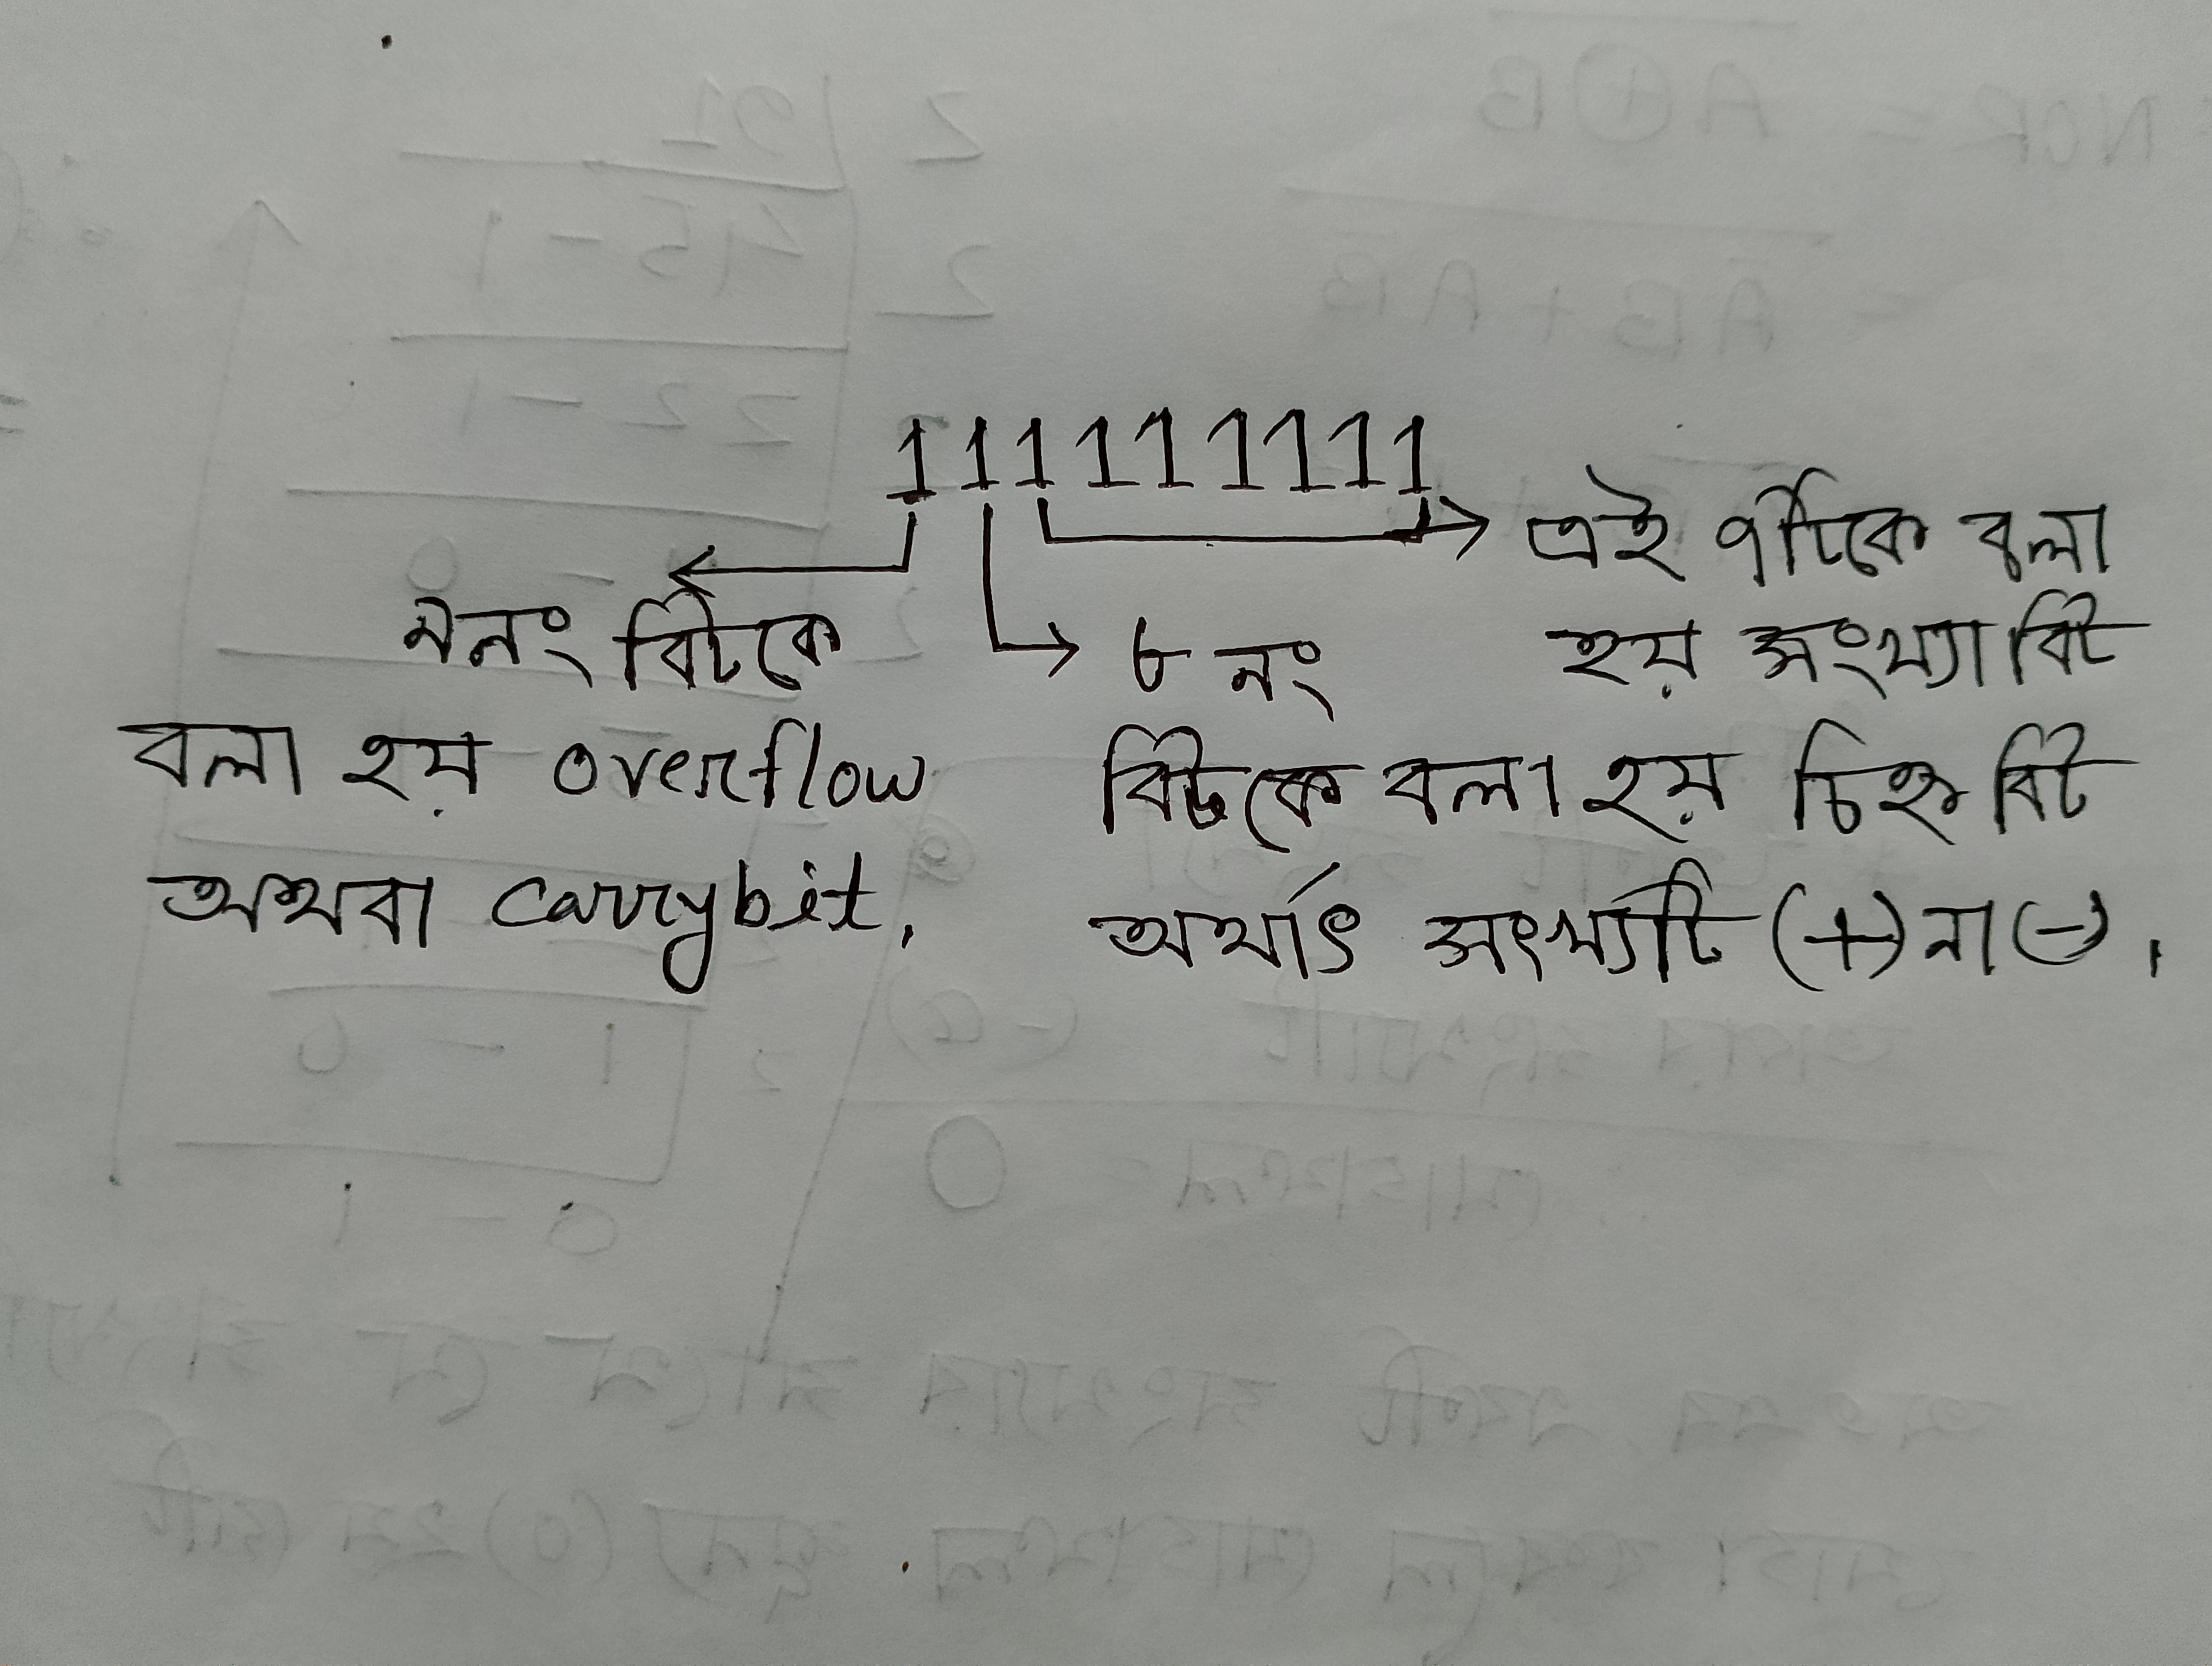 111111111
এই ৭টিকে বলা
হয় সংখ্যা বিট
৯নং বিটকে
বলা হয় overflow
অথবা carry bit.
৮ নং
বিটকে বলা হয় চিহ্ন বিট
অর্থাৎ সংখ্যাটি (+) না (-).